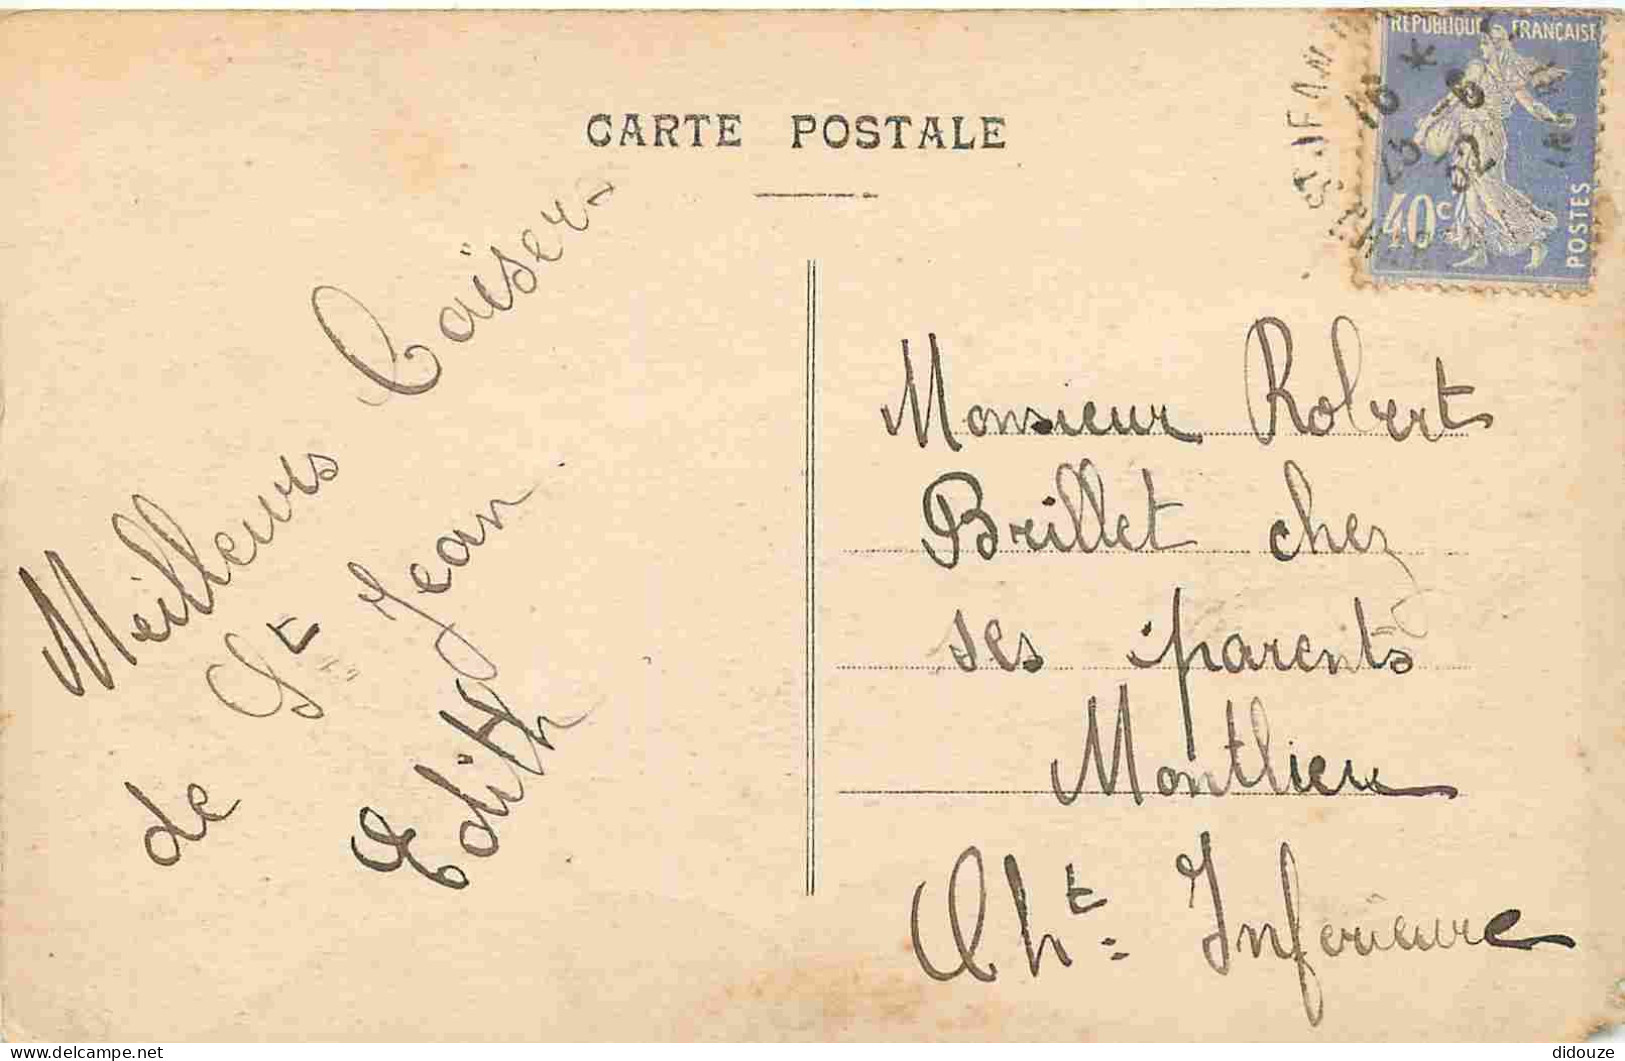 CARTE POSTALE
REPUBLIQUE FRANCAISE
40c
POSTES
Meilleurs Baïsers
de St Jean
Edith
Monsieur Robert
Brillet chez
ses parents
Montlieu
Cht Inférieure
didouze